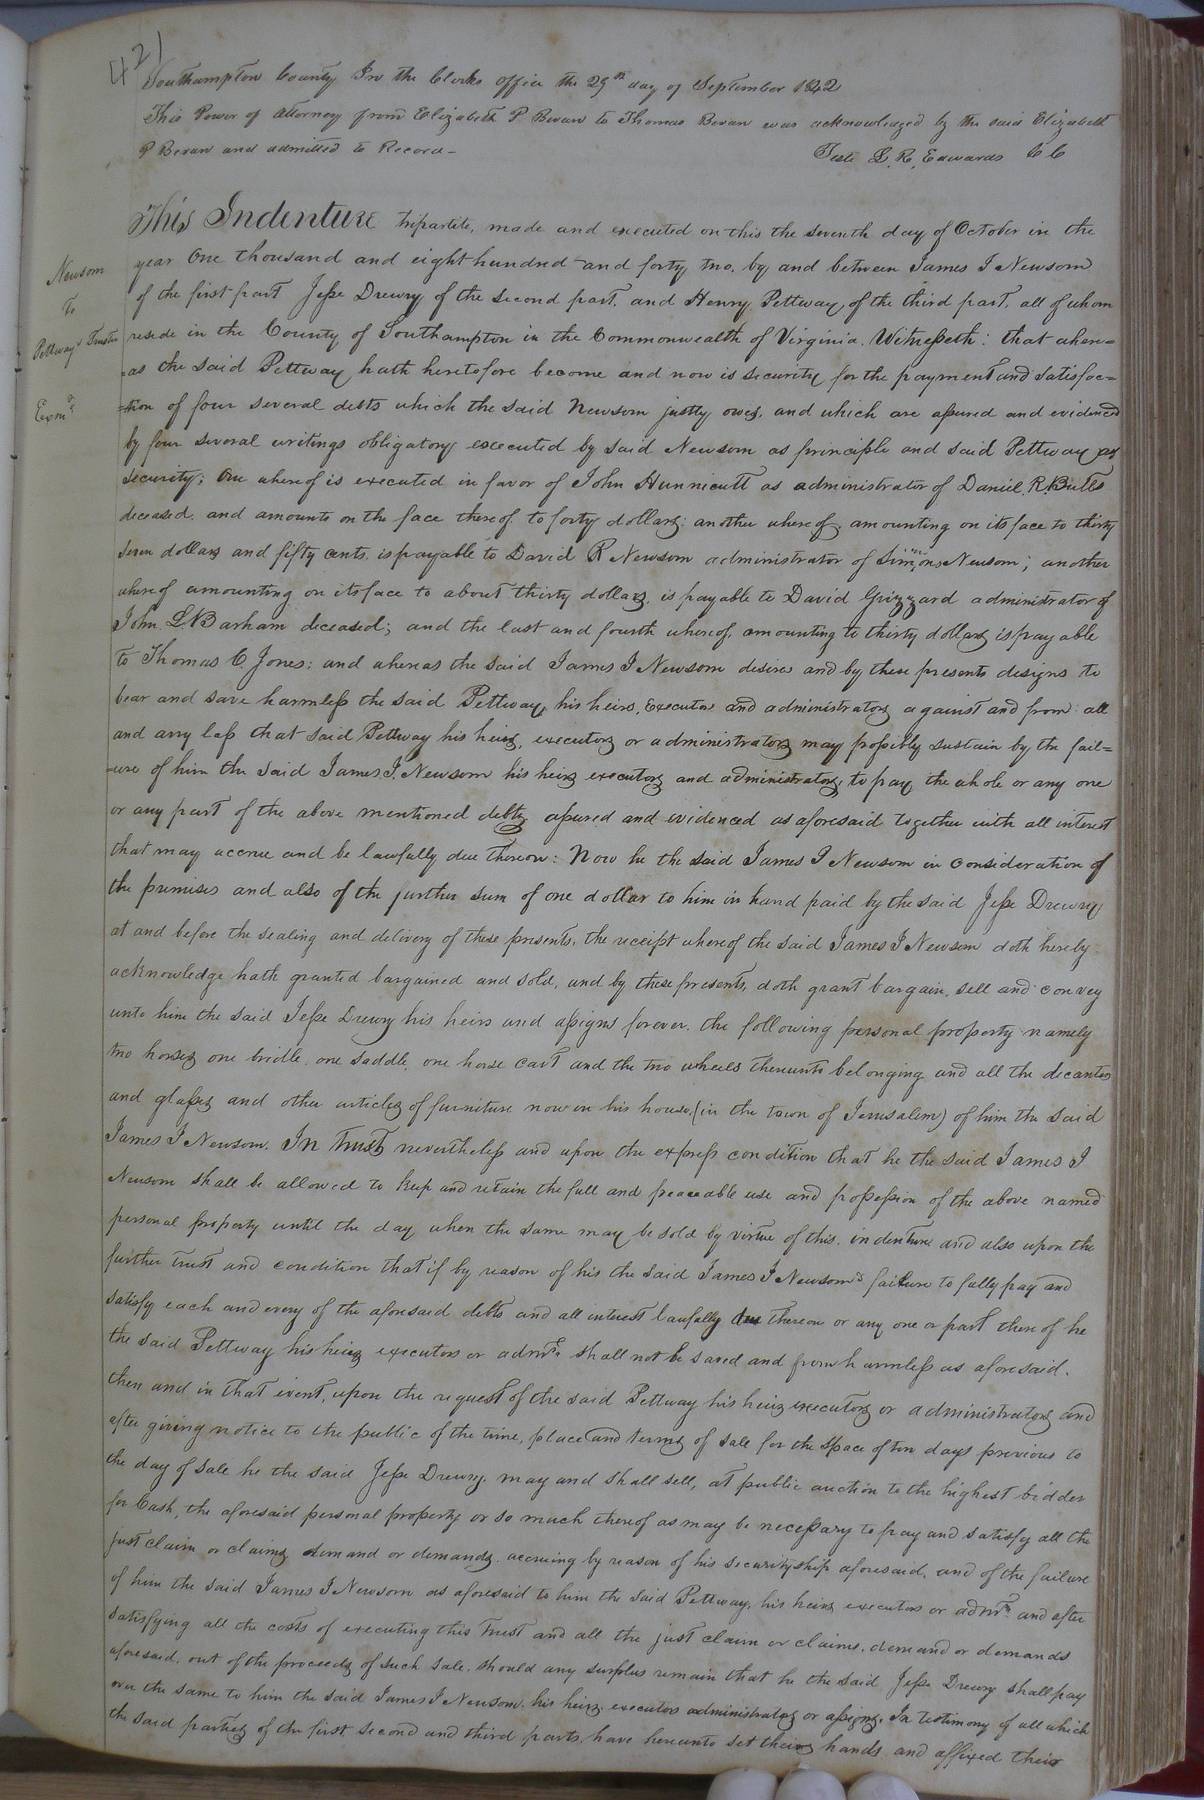 421
Southampton County In the Clerks office the 29th day of September 1842
This Power of Attorney from Elizabeth P Bevan to Thomas Bevan was acknowledged by the said Elizabeth
P Bevan and admitted to Record-
Teste L. R. Edwards CC
Newsom
To
Pettway & Trustee
Exmd
This Indenture tripartite, made and executed on this the seventh day of October in the
year One thousand and eight hundred and forty two, by and between James J Newsom
of the first part Jesse Drewry of the second part, and Henry Pettway of the third part, all of whom
reside in the County of Southampton in the Commonwealth of Virginia. Witnesseth: that where=
=as the said Pettway hath heretofore become and now is security for the payment and satisfac=
=tion of four several debts which the said Newsom justly owes, and which are assured and evidenced
by four several writings obligatory executed by said Newsom as principle and said Pettway as
security; One whereof is executed in favor of John Hunnicutt as administrator of Daniel R. Butts
deceased, and amounts on the face thereof, to forty dollars; another whereof amounting on its face to thirty
seven dollars and fifty cents, is payable to David R Newsom administrator of Simmons Newsom; another
whereof amounting on its face to about thirty dollars, is payable to David Grizzard administrator of
John L Barham deceased; and the last and fourth whereof, amounting to thirty dollars is payable
to Thomas C Jones; and whereas the said James J Newsom desires and by these presents designs to
bear and save harmless the said Pettway, his heirs, executors and administrators against and from all
and any loss that said Pettway his heirs, executors or administrators may possibly sustain by the fail=
=ure of him the said James J. Newsom his heirs executors and administrators, to pay the whole or any one
or any part of the above mentioned debts assured and evidenced as aforesaid together with all interest
that may accrue and be lawfully due thereon: Now he the said James J Newsom in consideration of
the premises and also of the further sum of one dollar to him in hand paid by the said Jesse Drewry
at and before the sealing and delivery of these presents, the receipt whereof the said James J Newsom doth hereby
acknowledge hath granted bargained and sold, and by these presents, doth grant bargain, sell and convey
unto him the said Jesse Drewry his heirs and assigns forever, the following personal property namely
two horses one bridle, one saddle, one horse cart and the two wheels thereunto belonging and all the decanters
and glasses and other articles of furniture now in his house, (in the town of Jerusalem) of him the said
James J Newsom. In Trust nevertheless and upon the express condition that he the said James J
Newsom shall be allowed to keep and retain the full and peaceable use and possession of the above named
personal property until the day when the same may be sold by virtue of this indenture and also upon the
further trust and condition that if by reason of his the said James J Newsom's failure to fully pay and
satisfy each and every of the aforesaid debts and all interest lawfully due thereon or any one or part thereof he
the said Pettway his heirs executors or admrs shall not be saved and from harmless as aforesaid,
then and in that event, upon the request of the said Pettway his heirs executors or administrators and
after giving notice to the public of the time, place and terms of sale for the space of ten days previous to
the day of sale he the said Jesse Drewry, may and shall sell, at public auction to the highest bidder
for Cash, the aforesaid personal property or so much thereof as may be necessary to pay and satisfy all the
just claim or claims demand or demands accruing by reason of his securityship aforesaid, and of the failure
of him the said James J Newsom as aforesaid to him the said Pettway, his heirs executors or admrs and after
satisfying all the costs of executing this Trust and all the just claim or claims, demand or demands
aforesaid, out of the proceeds of such sale, should any surplus remain that he the said Jesse Drewry shall pay
over the same to him the said James J Newsom, his heirs, executors administrators or assigns. In testimony of all which
the said parties of the first second and third parts, have hereunto set their hands and affixed their